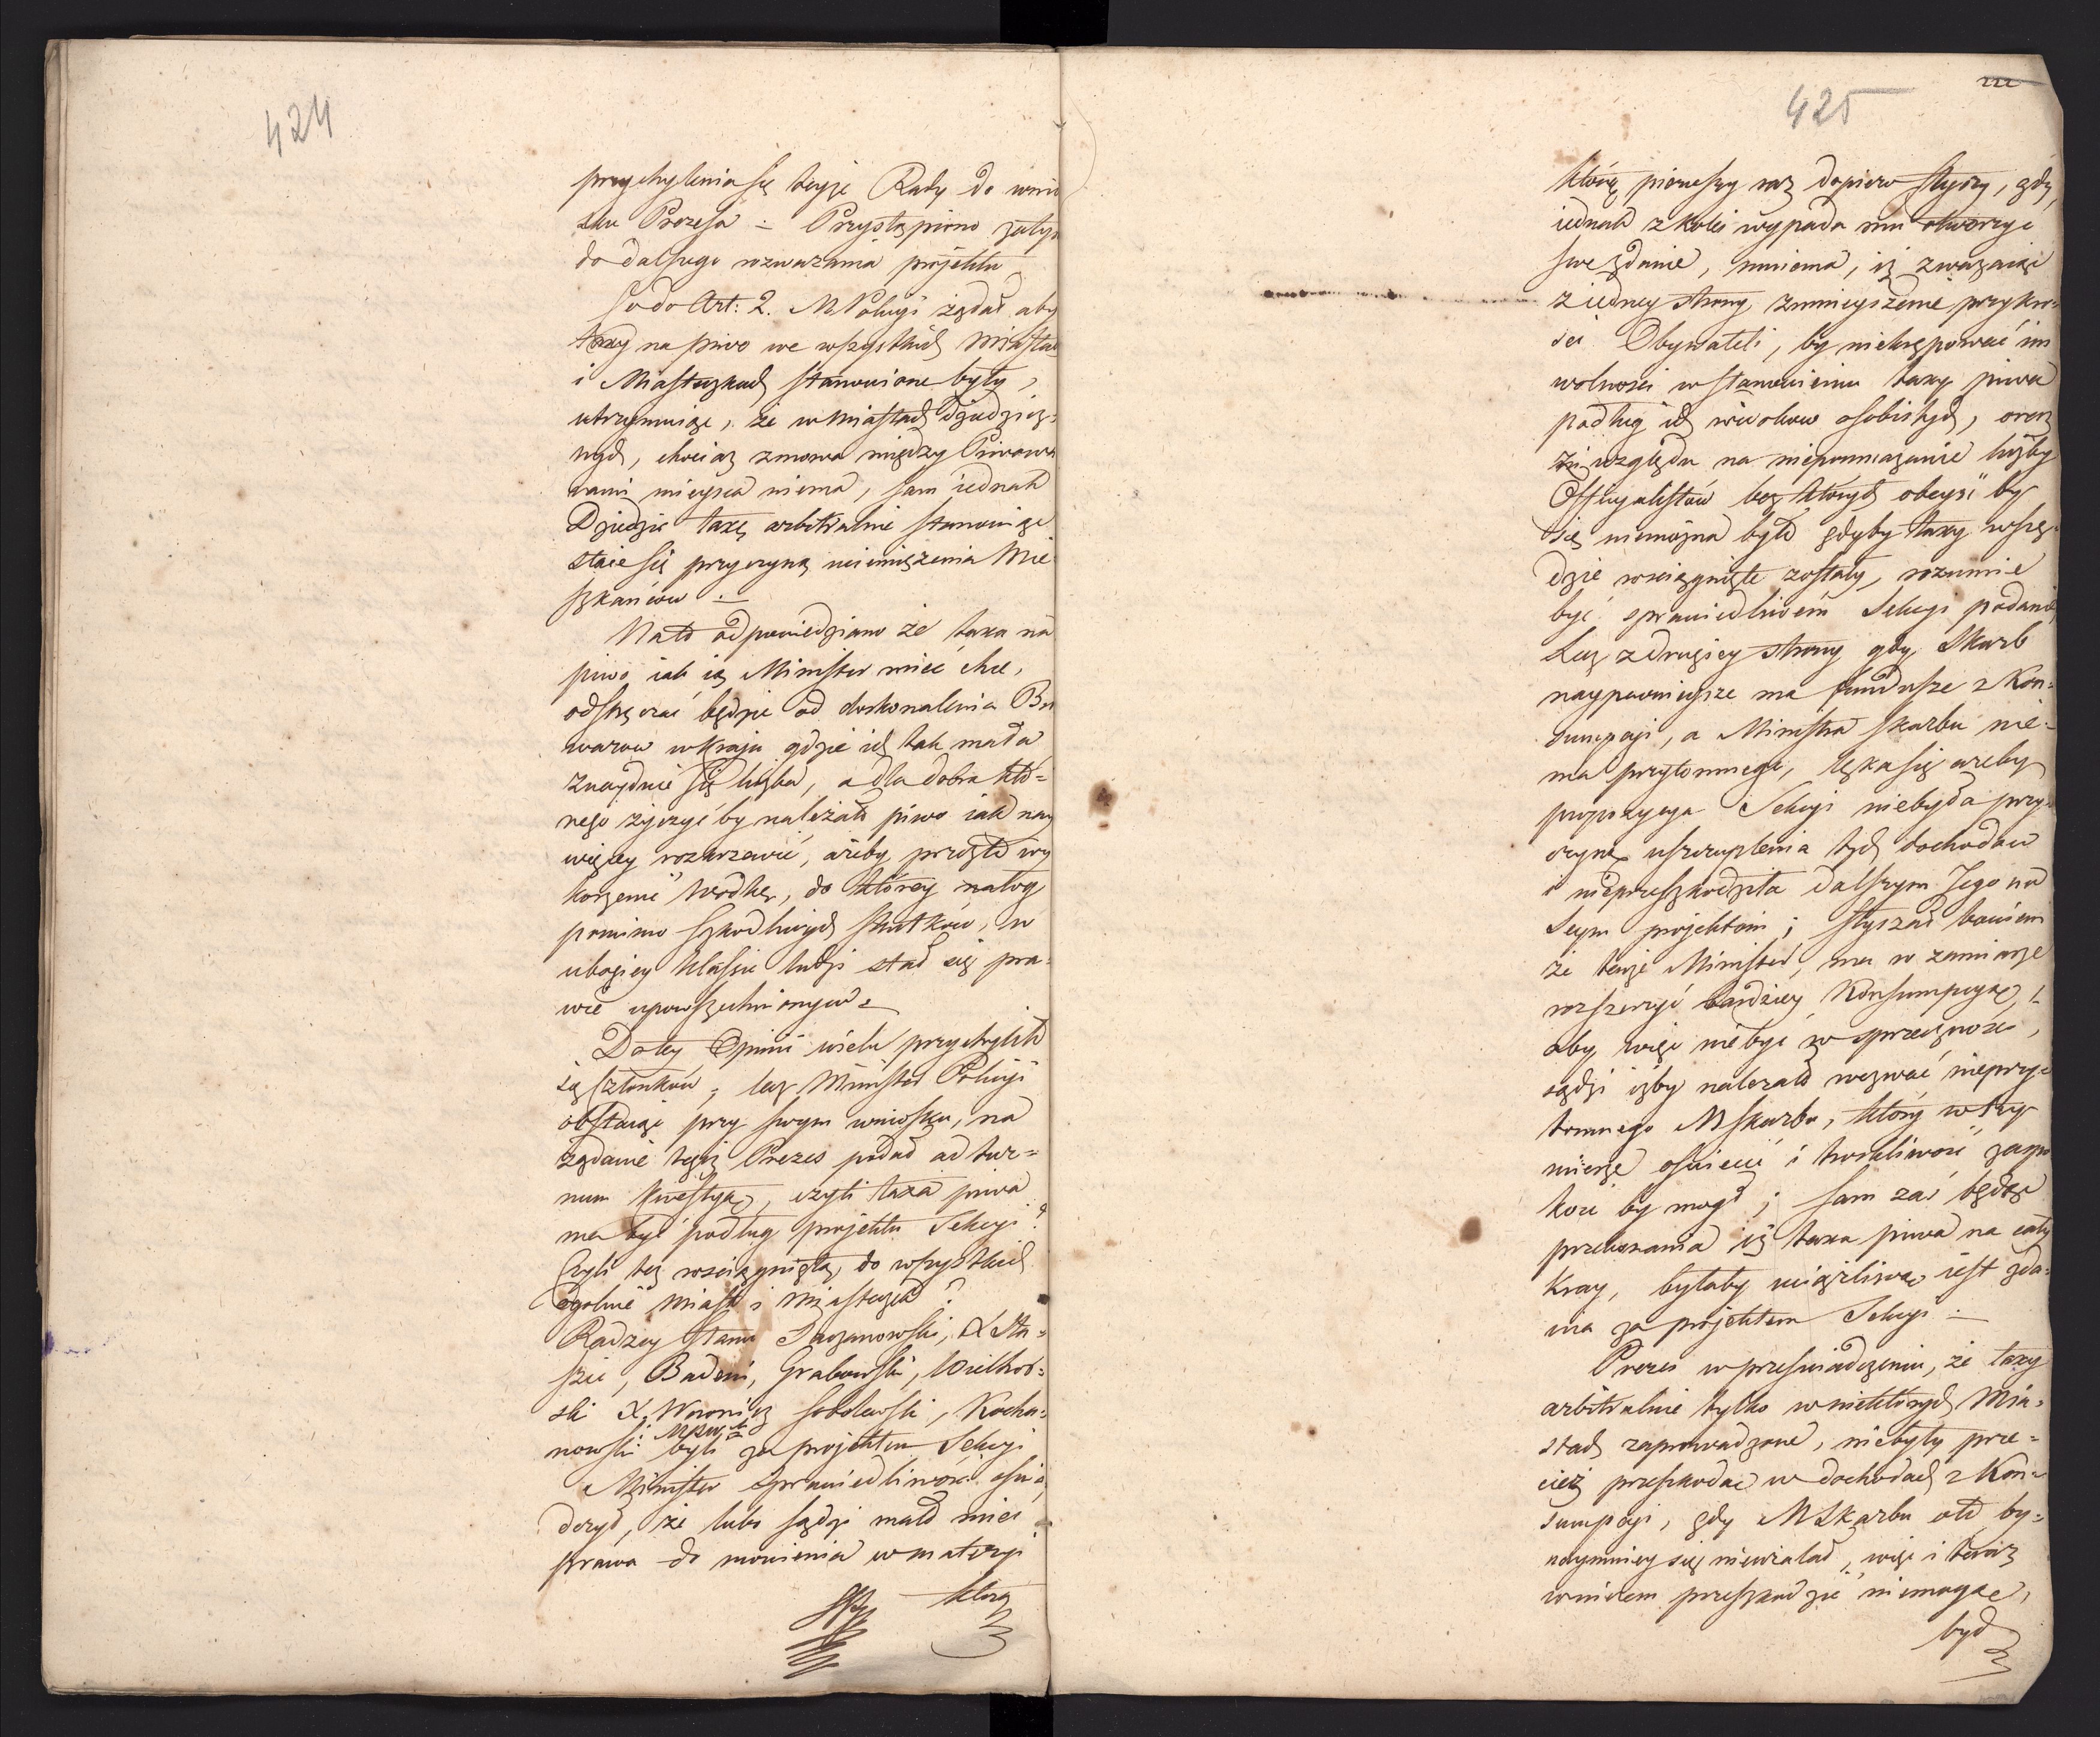 424
przychylenia się teyże Rady do wnio
sku Prezesa = Przystąpiono zatym
do dalszego rozważania projektu
Co do Art: 2. M Policyi żądał aby
taxy na piwo we wszystkich Miastach
i Miasteczkach stanowione były,
utrzymuiąc, że w Miastach Dziedzicz=
nych, chociaż zmowa między Piwowa
rami mieysca niema, sam iednak
Dziedzic taxę arbitralnie stanowiąc
staie się przyczyną uciemiężenia Mie
szkańców =
Na to odpowiedziano że taxa na
piwo iak ią Minister mieć chce,
odstręczać będzie od doskonalenia Bro
warow w Kraju gdzie ich tak mała
znayduie się liczba, a dla dobra któ=
rego życzyć by należało piwo iak nay
więcey rozkrzewić, ażeby przezto wy
korzenić wodkę, do którey nałog
pomimo szkodliwych skutków, w
ubogiey klassie ludzi stał się pra=
wie upowszechnionym =
Do tey Opinii wielu przychyliło
się Członków, lecz Minister Policyi
obstaiąc przy swym wniosku, na
żądanie tegoż Prezes podał ad tur=
num kwestyą, czyli taxa piwa
ma być podług projektu Sekcyi?
Czyli też rozciągnięta, do wszystkich
ogólnie Miast i Miasteczek?
Radzcy Stanu Łaszanowski, X Sta=
szic, Badeni, Grabowski, Wielhor=
ski X. Woronicz Sobolewski, Kocha=
nowski byli za projektem Sekcyi
Minister Sprawiedliwości oświa
dczył, że lubo sądzi mało mieć
prawa do mowienia w materyi
którą
425
którą pierwszy raz dopiero słyszy, gdy
iednak z kolei wypada mu otworzyć
swe zdanie, mniema, iż zważaiąc
z iedney strony zmnieyszenie przykro=
ści Obywateli, by niekrępować im
wolności w stanowieniu taxy piwa
podług ich widokow osobistych, oraz
ze względu na niepomnażanie liczby
Officyalistów bez których obeyść by
się niemożna było gdyby taxy wszę=
dzie rosciągnięte zostały, rozumie
być sprawiedliwem Sekcyi podanie
Lecz z drugiey strony gdy Skarb
naypewnieysze ma fundusze z Kon=
sumpcyi, a Ministra Skarbu nie=
ma przytomnego, lęka się ażeby
propozycya Sekcyi niebyła przy=
czyną uszczuplenia tych dochodów
i nieprzeszkodziła dalszym Jego na
Seym projektom; słyszał bowiem
że tenże Minister, ma w zamiarze
rozszerzyć bardziey Konsumpcyą,
aby więc nie być w sprzeczności,
sądzi iżby należało wezwać nieprzy=
tomnego M Skarbu, który w tey
mierze oświecić i troskliwość zaspo
koić by mogł; sam zaś będąc
przekonania iż taxa piwa na cały
Kray, byłaby uciążliwą iest zda=
nia za projektem Sekcyi =
Prezes w przeświadczeniu, że taxy
arbitralnie tylko w niektórych Mia=
stach zaprowadzone, niebyły prze=
cież przeszkodą w dochodach z Kon=
sumpcyi, gdy M Skarbu oto by=
naymniey się nieużalał, więc i teraz
w niczem przeszkodzić niemogąc,
był